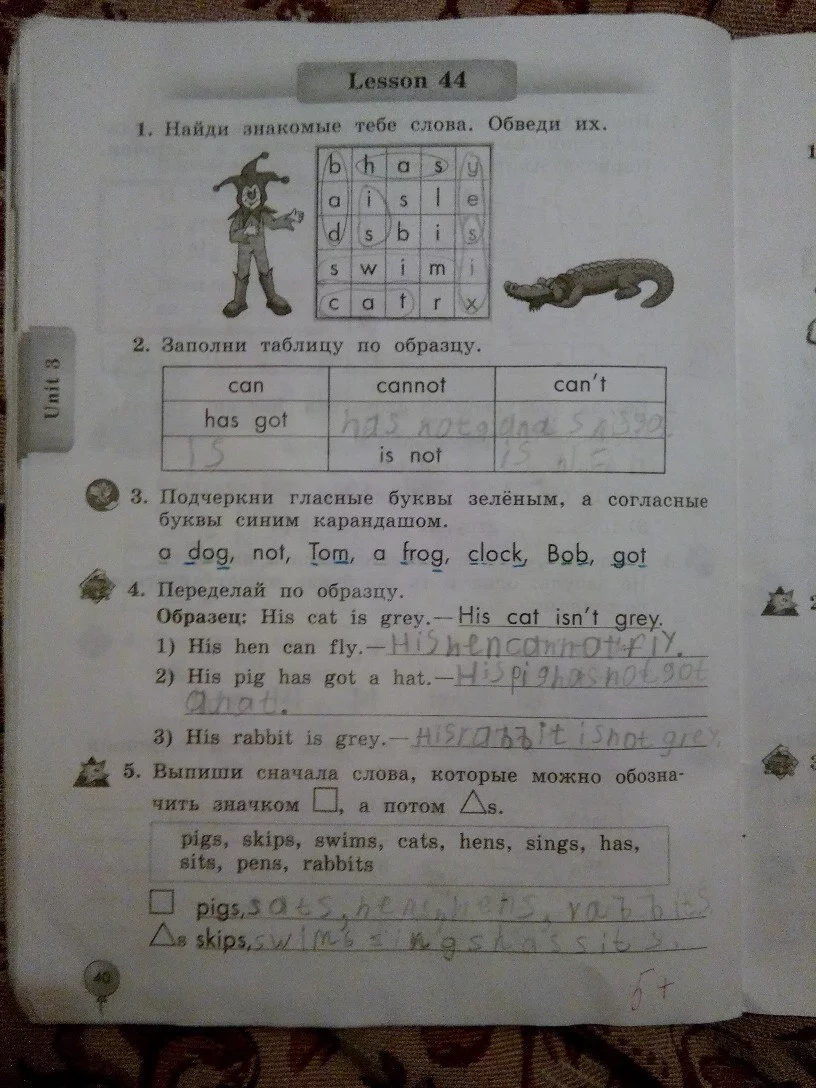 Lesson 44
1. Найди знакомые тебе слова. Обведи их.
b h a s y
a i s l e
d s b i s
s w i m i
c a t r x
2. Заполни таблицу по образцу.
can cannot can't
has got has not
is is not is
Unit 3
3. Подчеркни гласные буквы зелёным, а согласные
буквы синим карандашом.
a dog, not, Tom, a frog, clock, Bob, got
4. Переделай по образцу.
Образец: His cat is grey.—His cat isn't grey.
1) His hen can fly.—His hen cannot fly.
2) His pig has got a hat.—His pig has not got
a hat.
3) His rabbit is grey.—His rabbit is not grey
5. Выпиши сначала слова, которые можно обозна-
чить значком □, а потом △s.
pigs, skips, swims, cats, hens, sings, has,
sits, pens, rabbits
□ pigs, sats, hens, hens, rabbits
△s skips, swims sings has sits.
40
5+